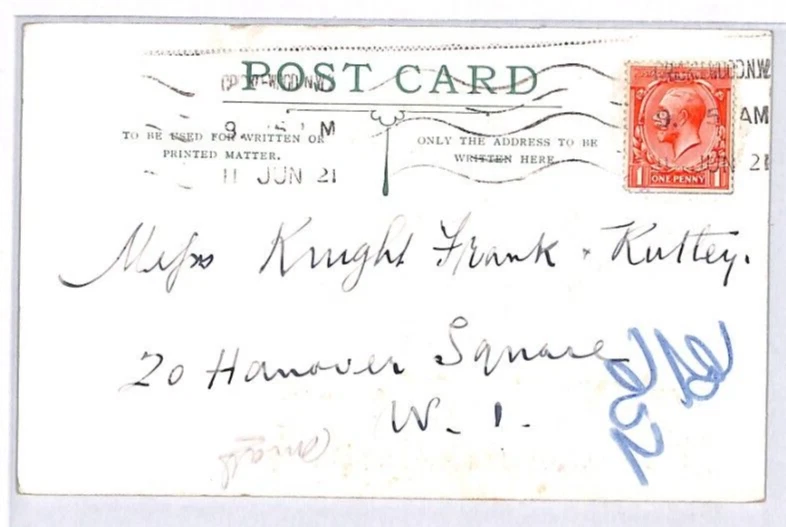 POST CARD
TO BE USED FOR WRITTEN OR
PRINTED MATTER.
ONLY THE ADDRESS TO BE
WRITTEN HERE.
11 JUN 21
AM
JUN 21
ONE PENNY
Messrs Knight Frank & Rutley.
20 Hanover Square
W. 1.